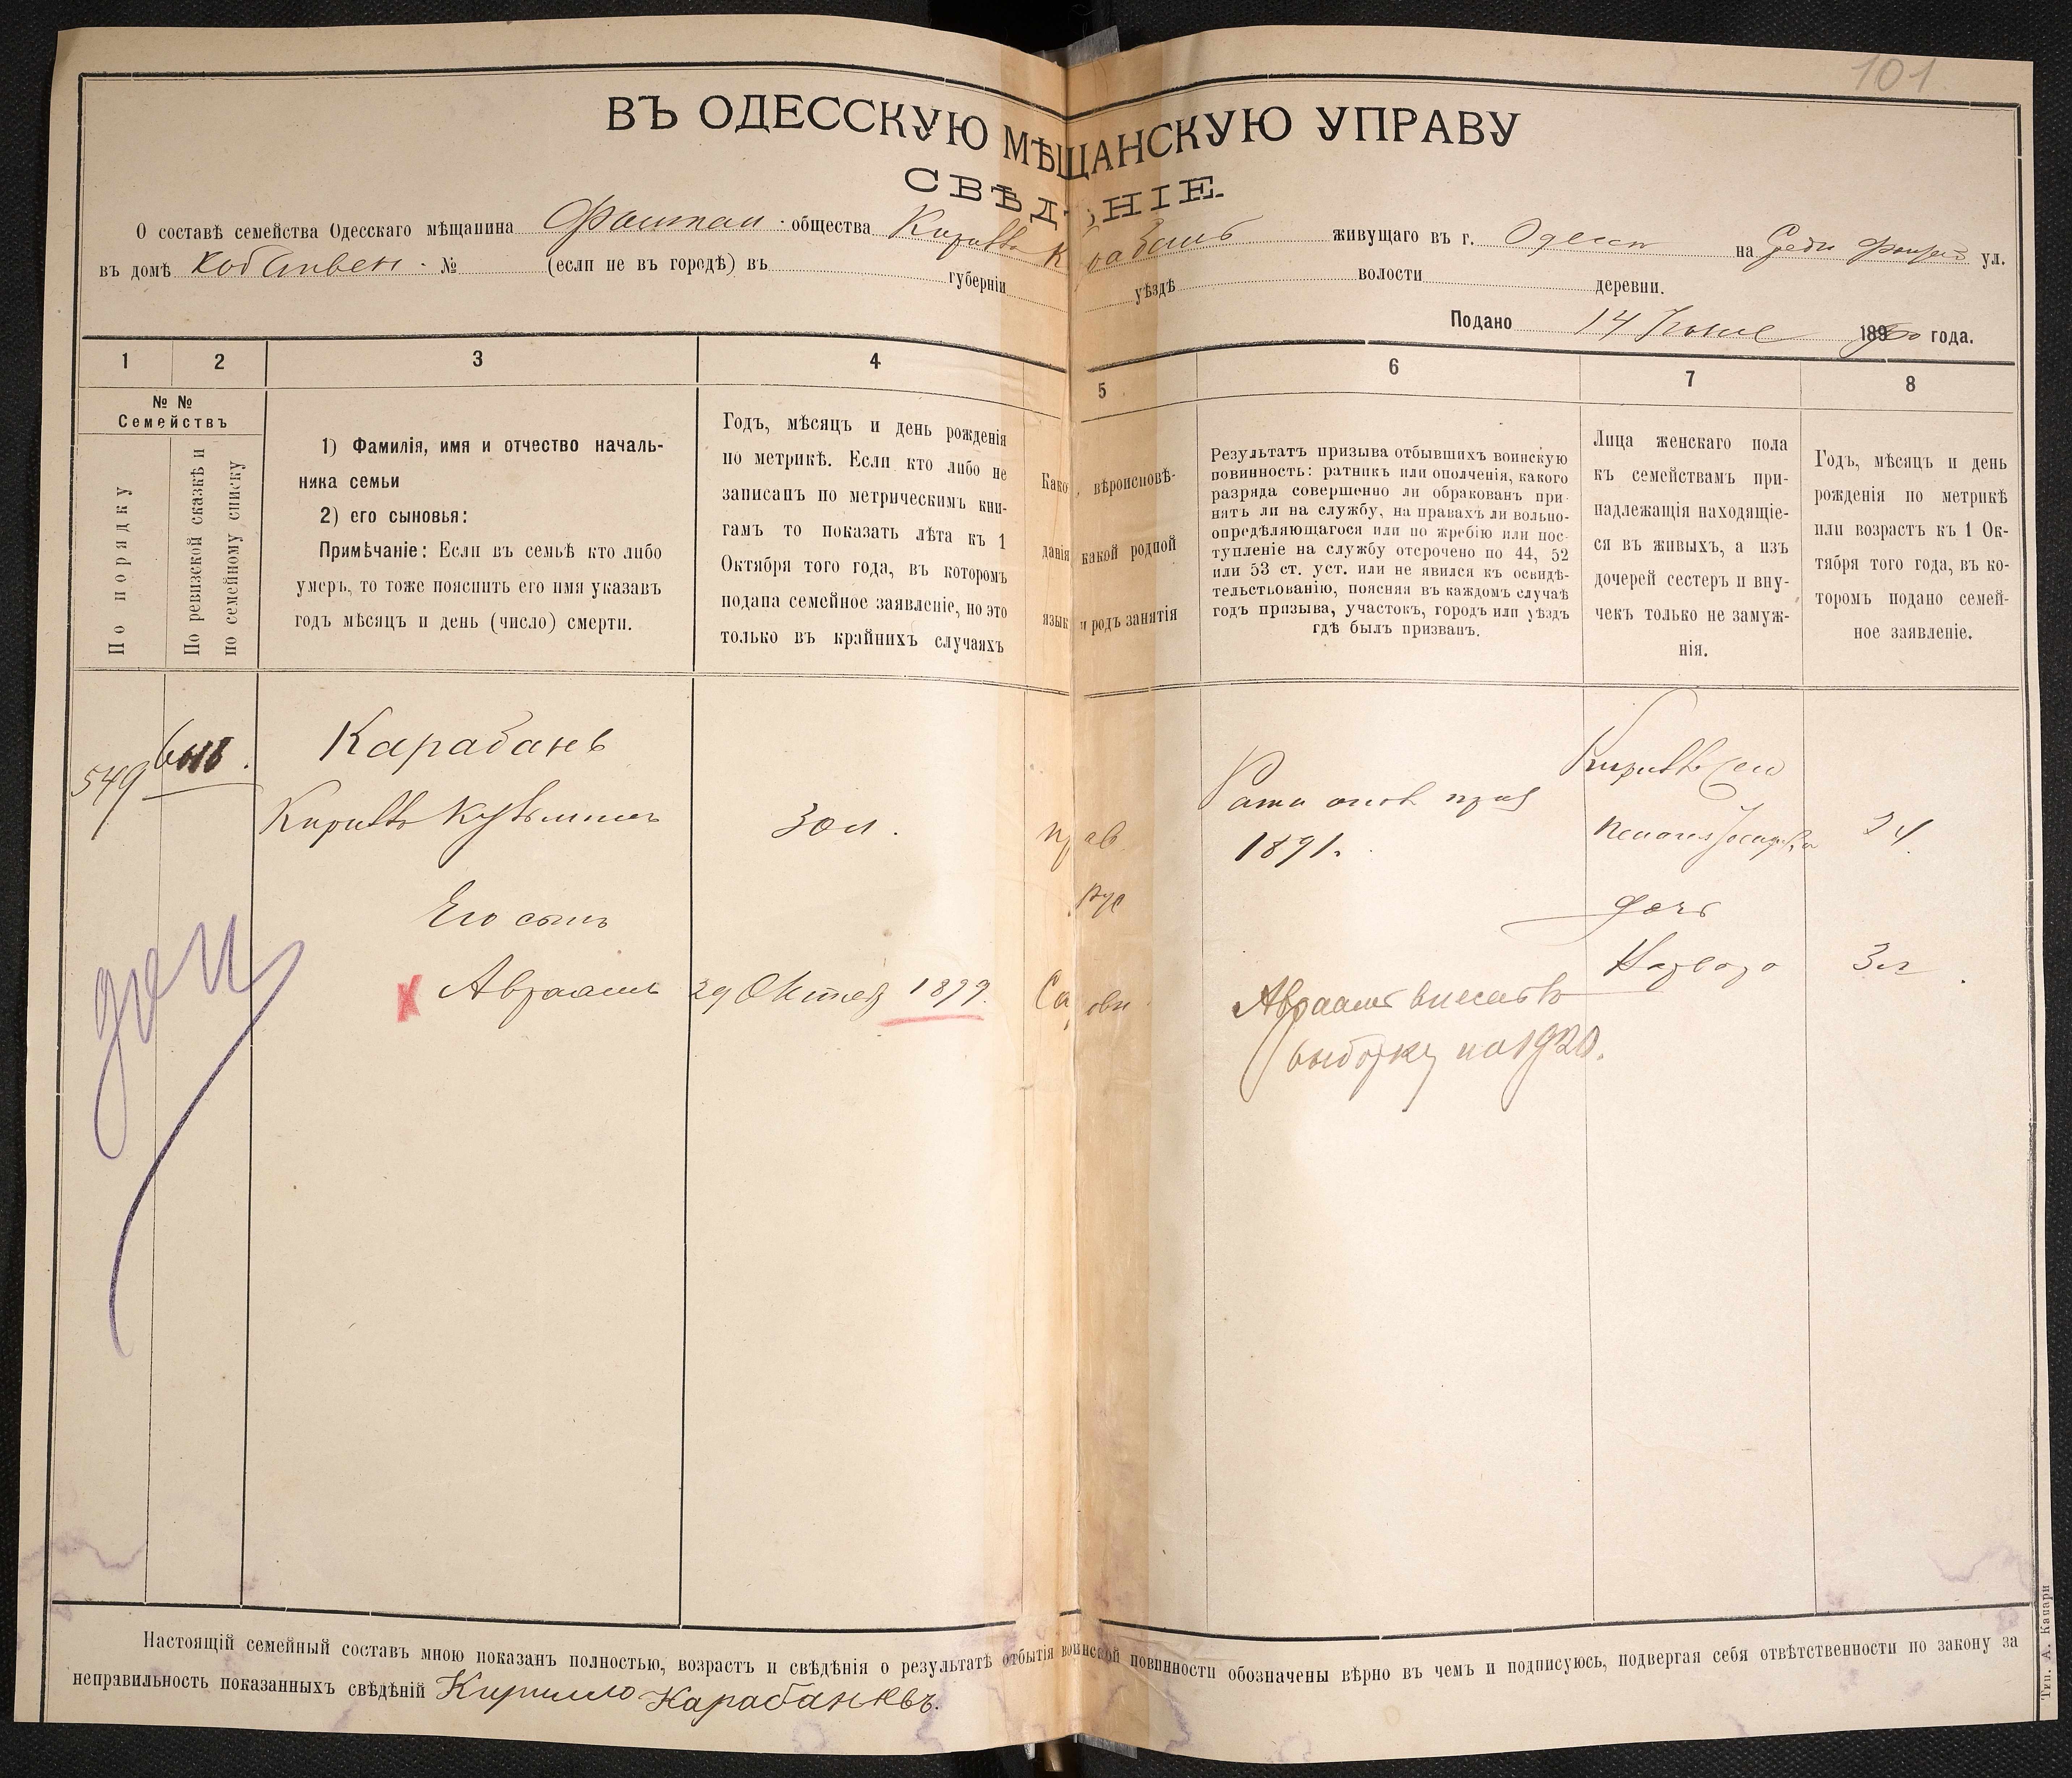 101
ВЪ ОДЕССКУЮ МѢЩАНСКУЮ УПРАВУ
СВѢДѢНІЕ.
О составѣ семейства Одесскаго мѣщанина Фонтан. общества Кирилъ Карабань живущаго въ г. Одесси на Средн Фонтан ул.
въ домѣ собствен. № (если не въ городѣ) въ губерніи уѣздѣ волости деревни.
Подано 14 Іюня 1890 года.
1 2 3 4 5 6 7 8
№ №
Семействъ
По порядку
По ревизской сказкѣ и
по семейному списку
1) Фамилія, имя и отчество началь-
ника семьи
2) его сыновья:
Примѣчаніе: Если въ семьѣ кто либо
умеръ, то тоже пояснить его имя указавъ
годъ мѣсяцъ и день (число) смерти.
Годъ, мѣсяцъ и день рожденія
по метрикѣ. Если кто либо не
записанъ по метрическимъ кни-
гамъ то показать лѣта къ 1
Октября того года, въ которомъ
подана семейное заявленіе, но это
только въ крайнихъ случаяхъ
Како вѣроисповѣ-
данія какой родной
язык и родъ занятія
Результатъ призыва отбывшихъ воинскую
повинность: ратникъ или ополченія, какого
разряда совершенно ли обракованъ при-
нятъ ли на службу, на правахъ ли вольно-
опредѣляющагося или по жребію или пос-
тупленіе на службу отсрочено по 44, 52
или 53 ст. уст. или не явился къ освидѣ-
тельствованію, поясняя въ каждомъ случаѣ
годъ призыва, участокъ, городъ или уѣздъ
гдѣ былъ призванъ.
Лица женскаго пола
къ семействамъ при-
надлежащія находящіе-
ся въ живыхъ, а изъ
дочерей сестеръ и вну-
чекъ только не замуж-
нія.
Годъ, мѣсяцъ и день
рожденія по метрикѣ
или возрастъ къ 1 Ок-
тября того года, въ ко-
торомъ подано семей-
ное заявленіе.
549
Карабань
Кирилъ Кузьминъ 30 л. прав Рат опол приз 1891. Кирилъ жен 24
рус
Его сынъ дочь
Авраамъ 29 Октяб 1899. Садовн Варвара 3 л
Авраамъ внесенъ въ
выборку на 1920.
доп
Настоящій семейный составъ мною показанъ полностью, возрастъ и свѣдѣнія о результатѣ отбытія воинской повинности обозначены вѣрно въ чемъ и подписуюсь, подвергая себя отвѣтственности по закону за
неправильность показанныхъ свѣдѣній Кирилло Карабаневъ.
Тип. А. Качари